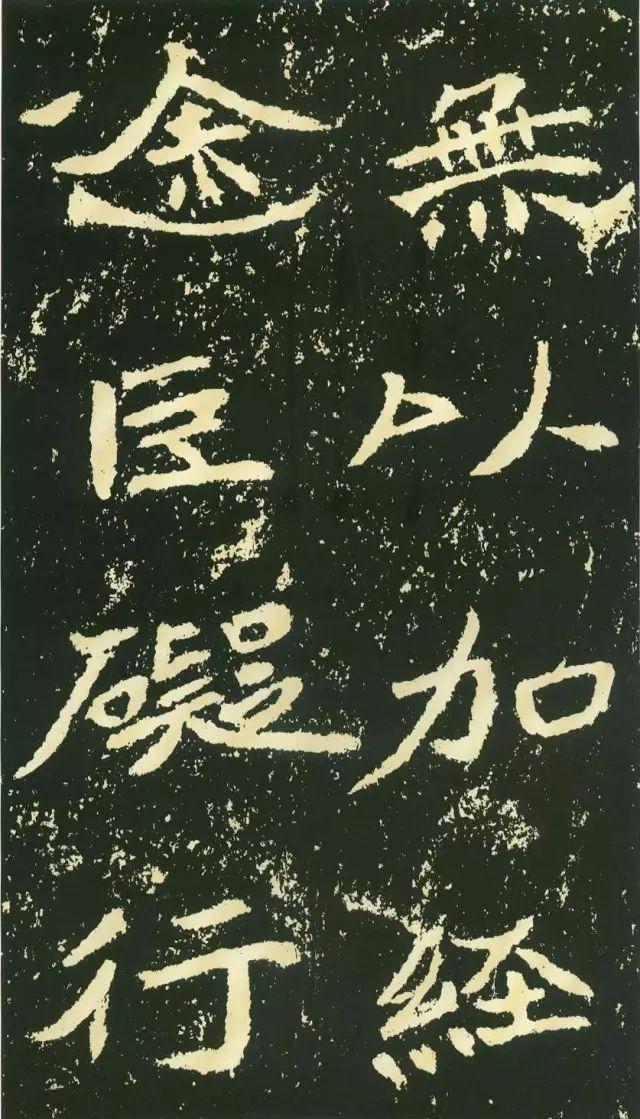 無以加經
途巨礙行